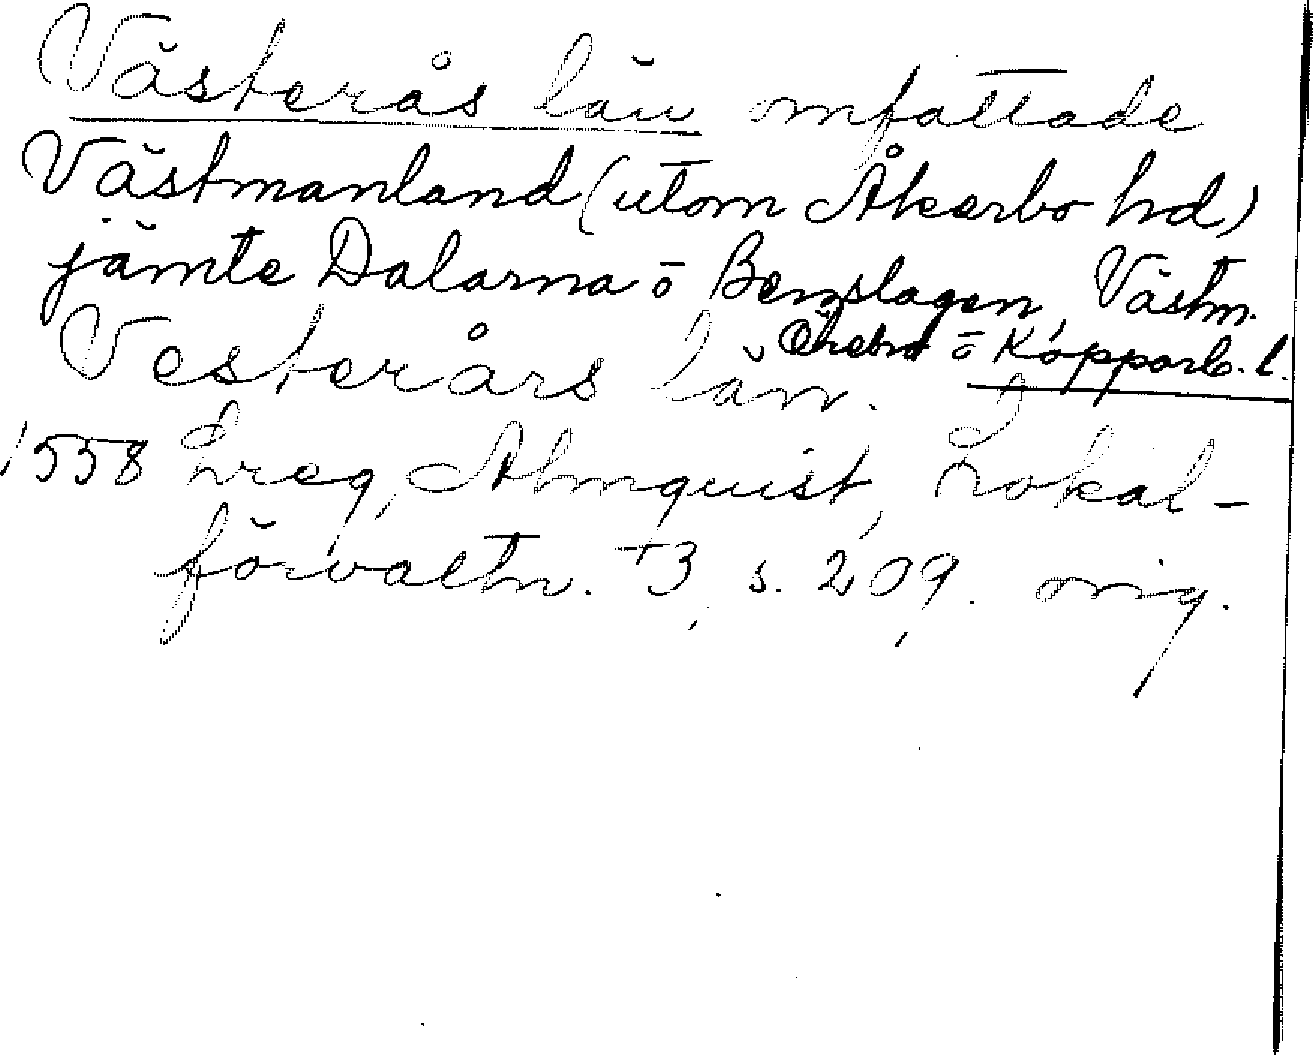 Västerås län omfattade
Västmanland (utom Åkerbo hd)
jämte Dalarna o Bergslagen, Västm.
Örebro o Kopparb. l.
Vesterårs län.
1558 Lreg, Almquist, Lokal-
förvaltn. 3, s. 209. orig.